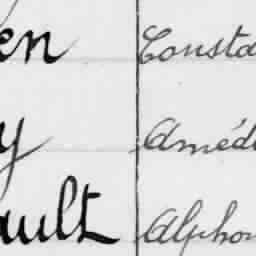 en Consta
y Amédé
ault Alphon